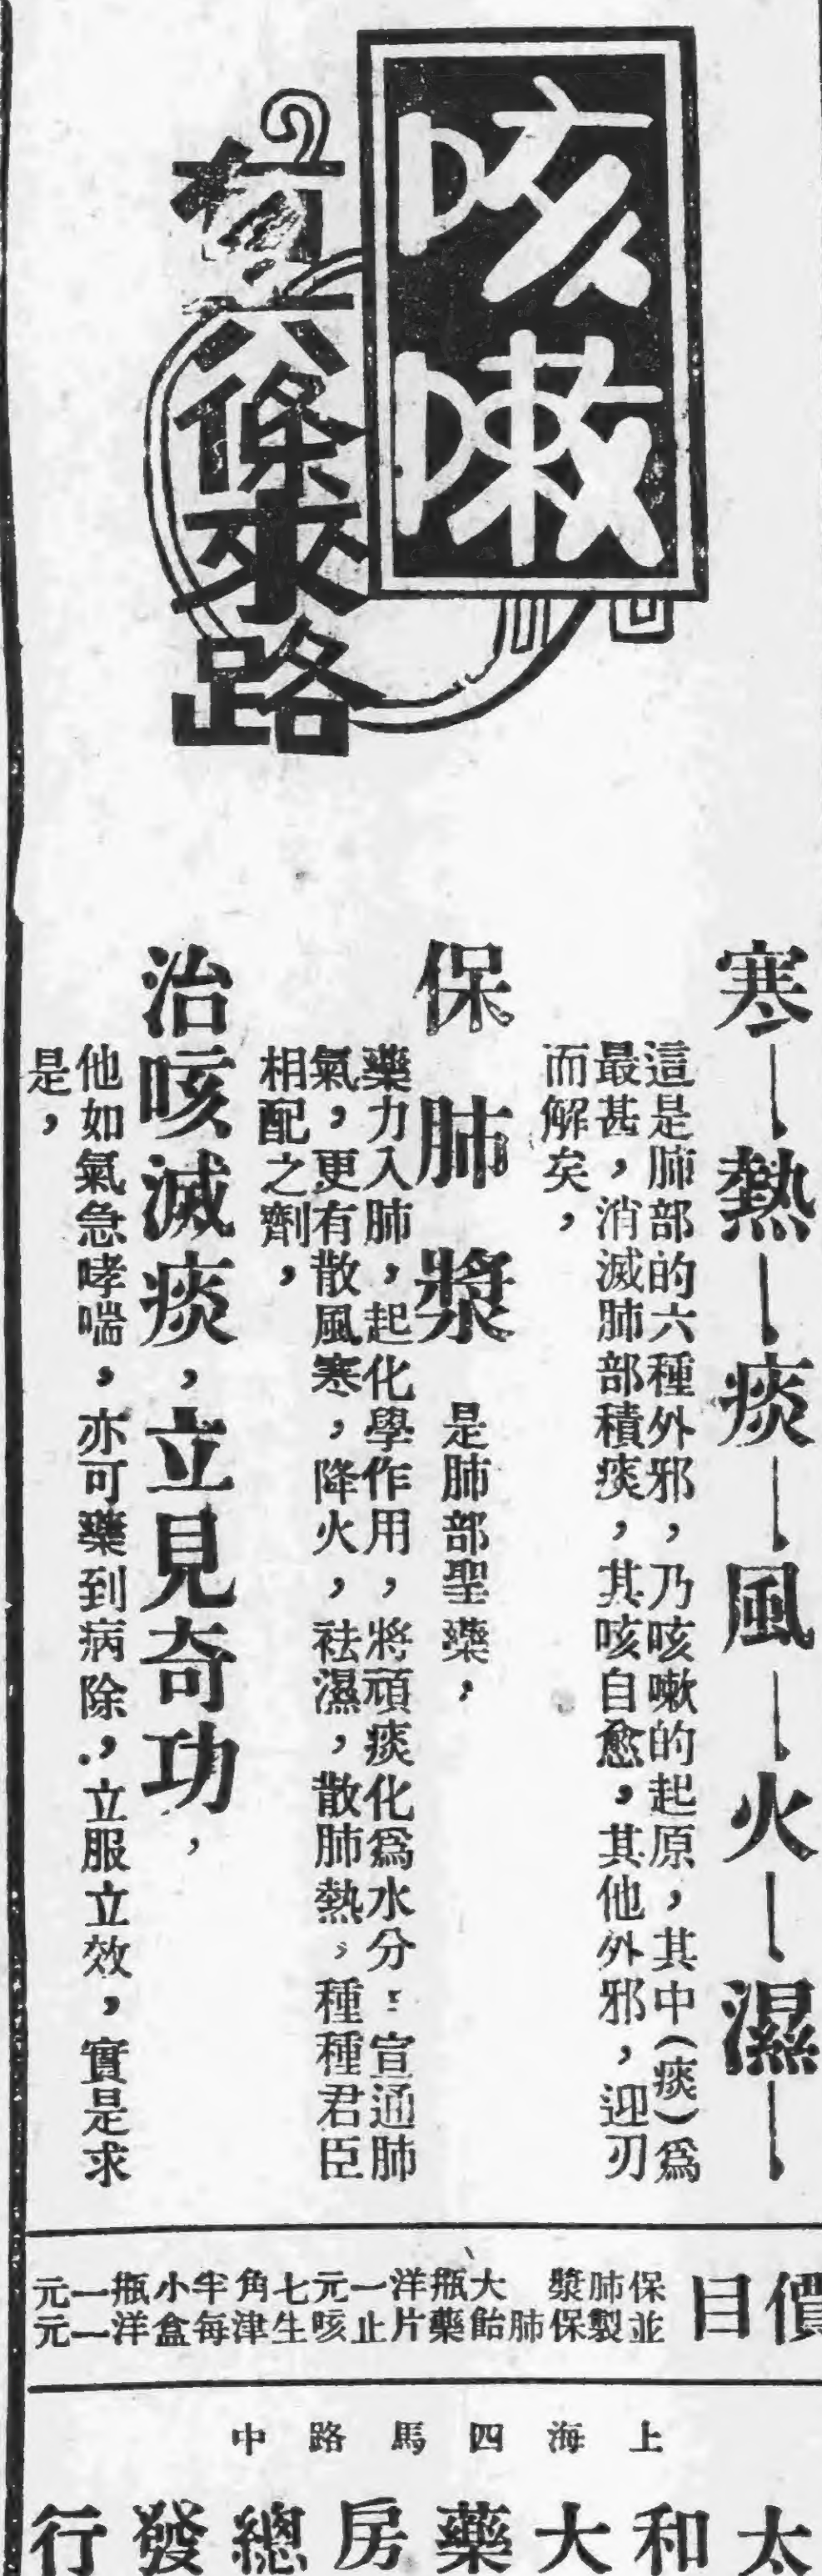 咳嗽
有六條來路
寒—熱—痰—風—火—濕—
這是肺部的六種外邪，乃咳嗽的起原，其中（痰）爲
最甚，消滅肺部積痰，其咳自愈，其他外邪，迎刃
而解矣，
保肺漿 是肺部聖藥，
藥力入肺，起化學作用，將頑痰化爲水分：宣通肺
氣，更有散風寒，降火，袪濕，散肺熱，種種君臣
相配之劑，
治咳滅痰，立見奇功，
他如氣急哮喘，亦可藥到病除，立服立效，實是求
是，
價目
保肺漿 大瓶洋一元七角半小瓶一元
並製保肺飴藥片止咳生津每盒洋一元
上海四馬路中
太和大藥房總發行